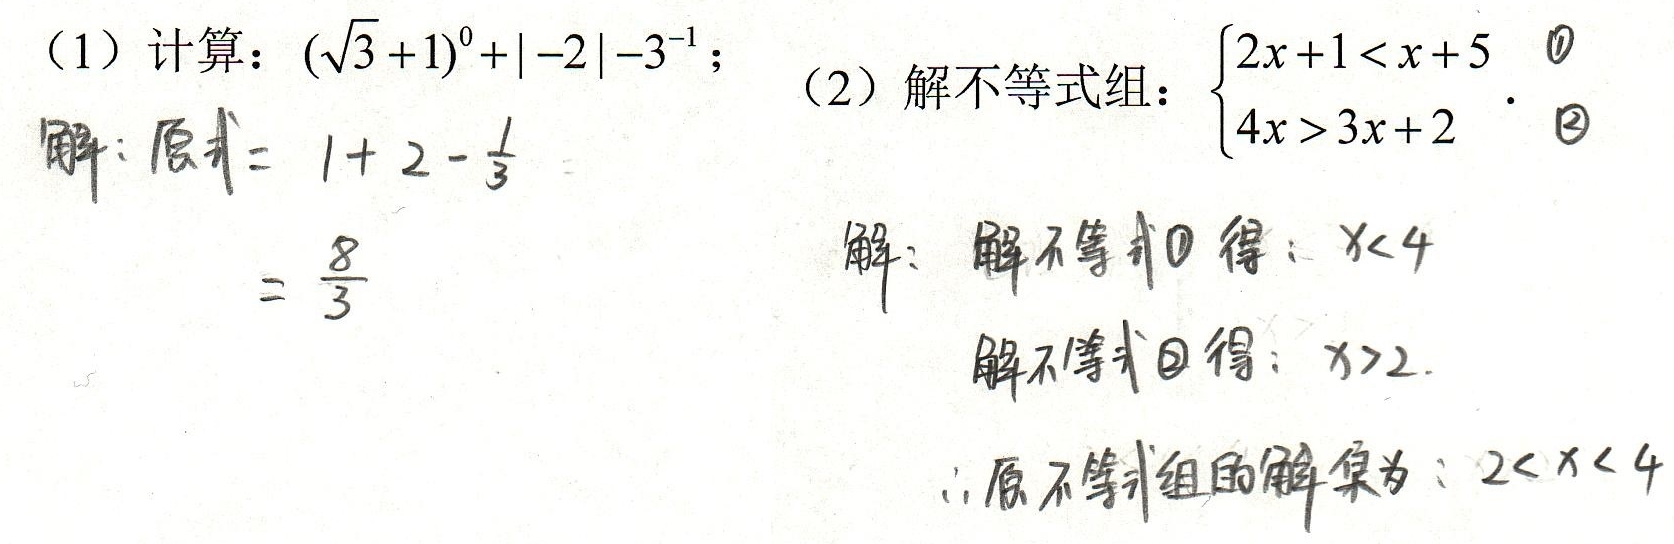 （1）计算：(√3+1)⁰+|−2|−3⁻¹；
解：原式= 1+2-1/3
= 8/3
（2）解不等式组：{2x+1<x+5 ①
4x>3x+2 ②.
解： 解不等式①得：x<4
解不等式②得：x>2.
∴原不等式组的解集为：2<x<4